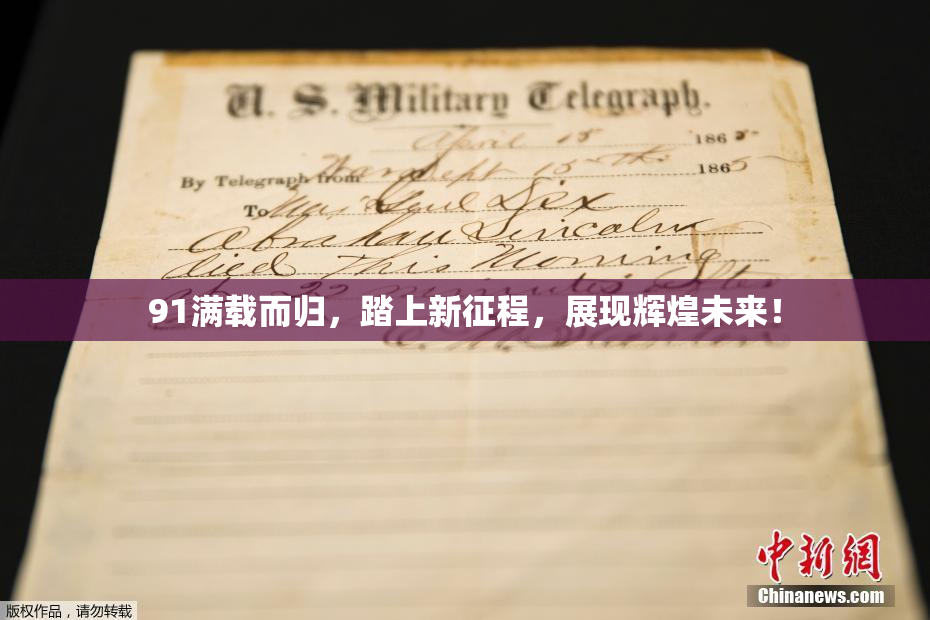 U. S. Military Telegraph.
April 15 1865
By Telegraph from War Dept 15th 1865
To Maj Genl Dix
Abraham Lincoln
died This Morning
at 22 minutes after
91满载而归，踏上新征程，展现辉煌未来！
E. M. Stanton
中新网
Chinanews.com
版权作品，请勿转载